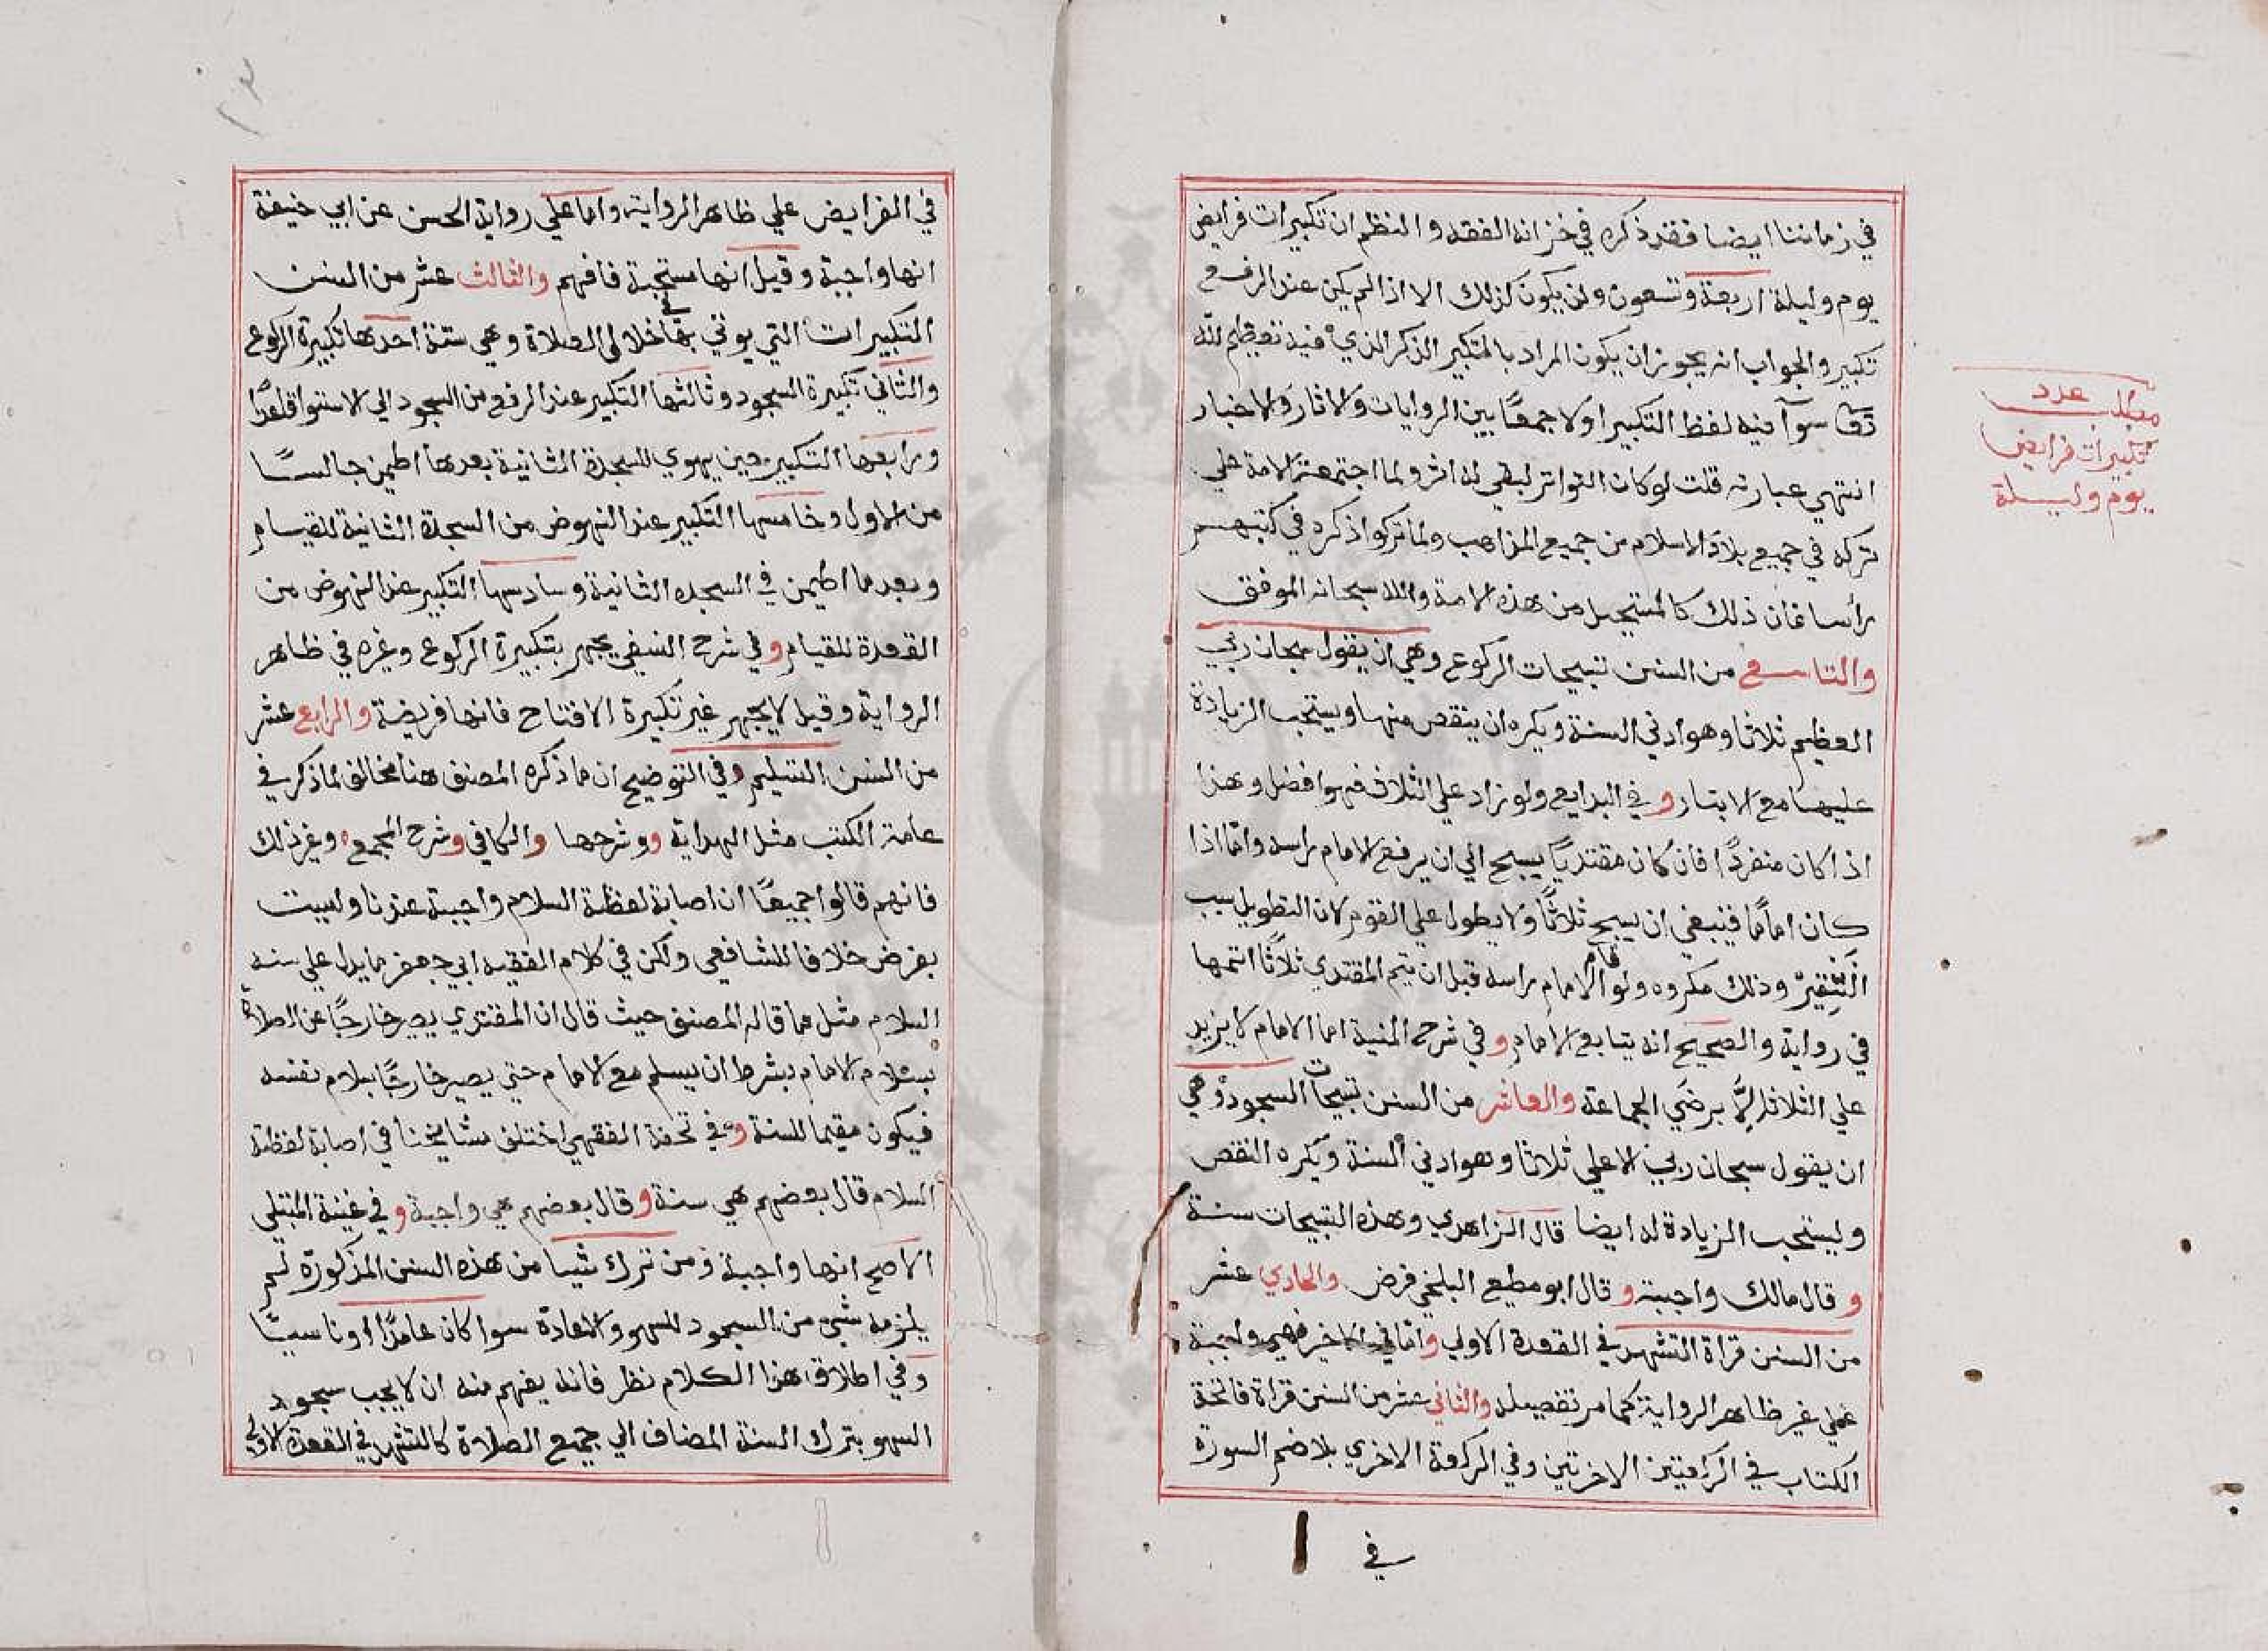 في زماننا ايضا فقد ذكره في خزانة الفقه والنظم ان تكبيرات فرايض
يوم وليلة اربعة وتسعون ولن يكون كذلك الا اذا لم يكن عند الرفع
تكبير والجواب انه يجوز ان يكون المراد بالتكبير الذكر الذي فيه تعظيم لله
تعا سوآ فيه لفظ التكبير اولا جمعًا بين الروايات والاثار والاخبار
انتهي عبارته قلت لو كان التواتر لبقي له اثر ولما اجتمعت الامة علي
تركه في جميع بلاد الاسلام من جميع المذاهب ولما تركوا ذكره في كتبهم
راسا فان ذلك كالمستحيل من هذه الامة والله سبحانه الموفق
والتاسع من السنن تسبيحات الركوع وهي ان يقول سبحان ربي
العظيم ثلاثا وهو ادني السنة ويكره ان ينقص منها ويستحب الزيادة
عليها مع الايتار وفي البدايع ولو زاد علي الثلاث فهو افضل وهذا
اذا كان منفردًا فان كان مقتديًا يسبح الي ان يرفع الامام راسه واما اذا
كان امامًا فينبغي ان يسبح ثلاثًا ولا يطول علي القوم لان التطويل سبب
التنفير وذلك مكروه ولو قام الامام راسه قبل ان يتم المقتدي ثلاثًا اتمها
في رواية والصحيح انه يتابع الامام وفي شرح المنية اما الامام لا يزيد
علي الثلاث الا برضي الجماعة والعاشر من السنن تسبيحات السجود وهي
ان يقول سبحان ربي الاعلي ثلاثا وهو ادني السنة ويكره النقص
وليستحب الزيادة له ايضا قال الزاهدي وهذه التسبيحات سنة
وقال مالك واجبة وقال ابو مطيع البلخي فرض والحادي عشر
من السنن قراة التشهد في القعدة الاولي واما في الاخير فهي واجبة
علي غير ظاهر الرواية كما مر تفصيله والثاني عشر من السنن قراة فاتحة
الكتاب في الركعتين الاخرتين وفي الركعة الاخري بلا ضم السورة
في
مطلب عدد
تكبيرات فرايض
يوم وليلة
في الفرايض علي ظاهر الرواية واما علي رواية الحسن عن ابي حنيفة
انها واجبة وقيل انها مستحبة فافهم والثالث عشر من السنن
التكبيرات التي يوتي بها في خلال الصلاة وهي ستة احدها تكبيرة الركوع
والثاني تكبيرة السجود وثالثها التكبير عند الرفع من السجود الي الاستوا قاعدًا
ورابعها التكبير حين يهوي للسجدة الثانية بعدما اطمين جالسًا
من الاول وخامسها التكبير عند النهوض من السجدة الثانية للقيام
وبعد ما اطمين في السجده الثانية وسادسها التكبير عند النهوض من
القعدة للقيام وفي شرح النسفي يجهر بتكبيرة الركوع وغيره في ظاهر
الرواية وقيل لا يجهر غير تكبيرة الافتتاح فانها فريضة والرابع عشر
من السنن التسليم وفي التوضيح ان ما ذكره المصنف هنا مخالف لما ذكر في
عامة الكتب مثل الهداية وشرحها والكافي وشرح المجمع وغير ذلك
فانهم قالوا جميعًا ان اصابة لفظة السلام واجبة عندنا وليست
بفرض خلافا للشافعي ولكن في كلام الفقيه ابي جعفر ما يدل علي سنة
السلام مثل ما قاله المصنف حيث قال ان المقتدي يصير خارجًا عن الصلاة
بسلام الامام بشرط ان يسلم مع الامام حتي يصير خارجًا بسلام نفسه
فيكون مقيما للسنة وفي تحفة الفقهي اختلف مشايخنا في اصابة لفظة
السلام قال بعضهم هي سنة وقال بعضهم هي واجبة وفي غنية المبتلي
الاصح انها واجبة ومن ترك شيا من هذه السنن المذكورة لم
يلزمه شئ من السجود للسهو والاعادة سوا كان عامدًا او ناسيًا
وفي اطلاق هذا الكلام نظر فانه يفهم منه ان لا يجب سجود
السهو بترك السنة المضاف الي جميع الصلاة كالتشهد في القعدة الاولي